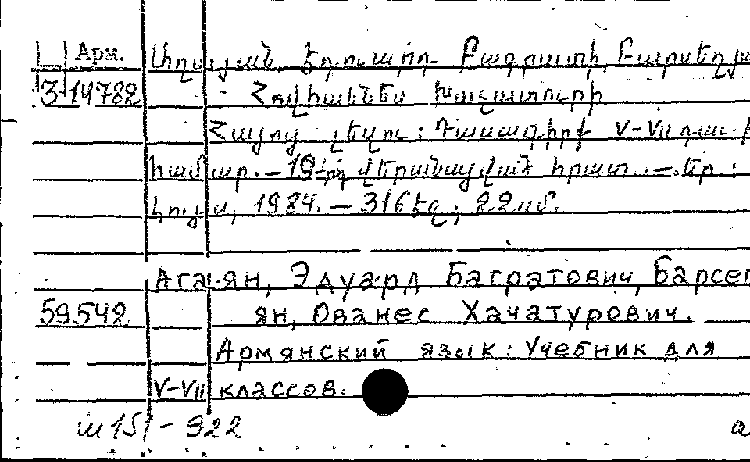 Арм. Աղայան, Էդուարդ Բագրատի, Բարսեղյա
3-14782 Հովհաննես Խաչատուրի
Հայոց լեզու: Դասագիրք V-VII դաս
համար. - 19-րդ վերանայված հրատ. - Եր.:
Լույս, 1984. - 316 էջ; 22 սմ.
Агаян, Эдуард Багратович, Барсег
59542 ян, Ованес Хачатурович.
Армянский язык: Учебник для
V-VII классов.
ա 151-922 а